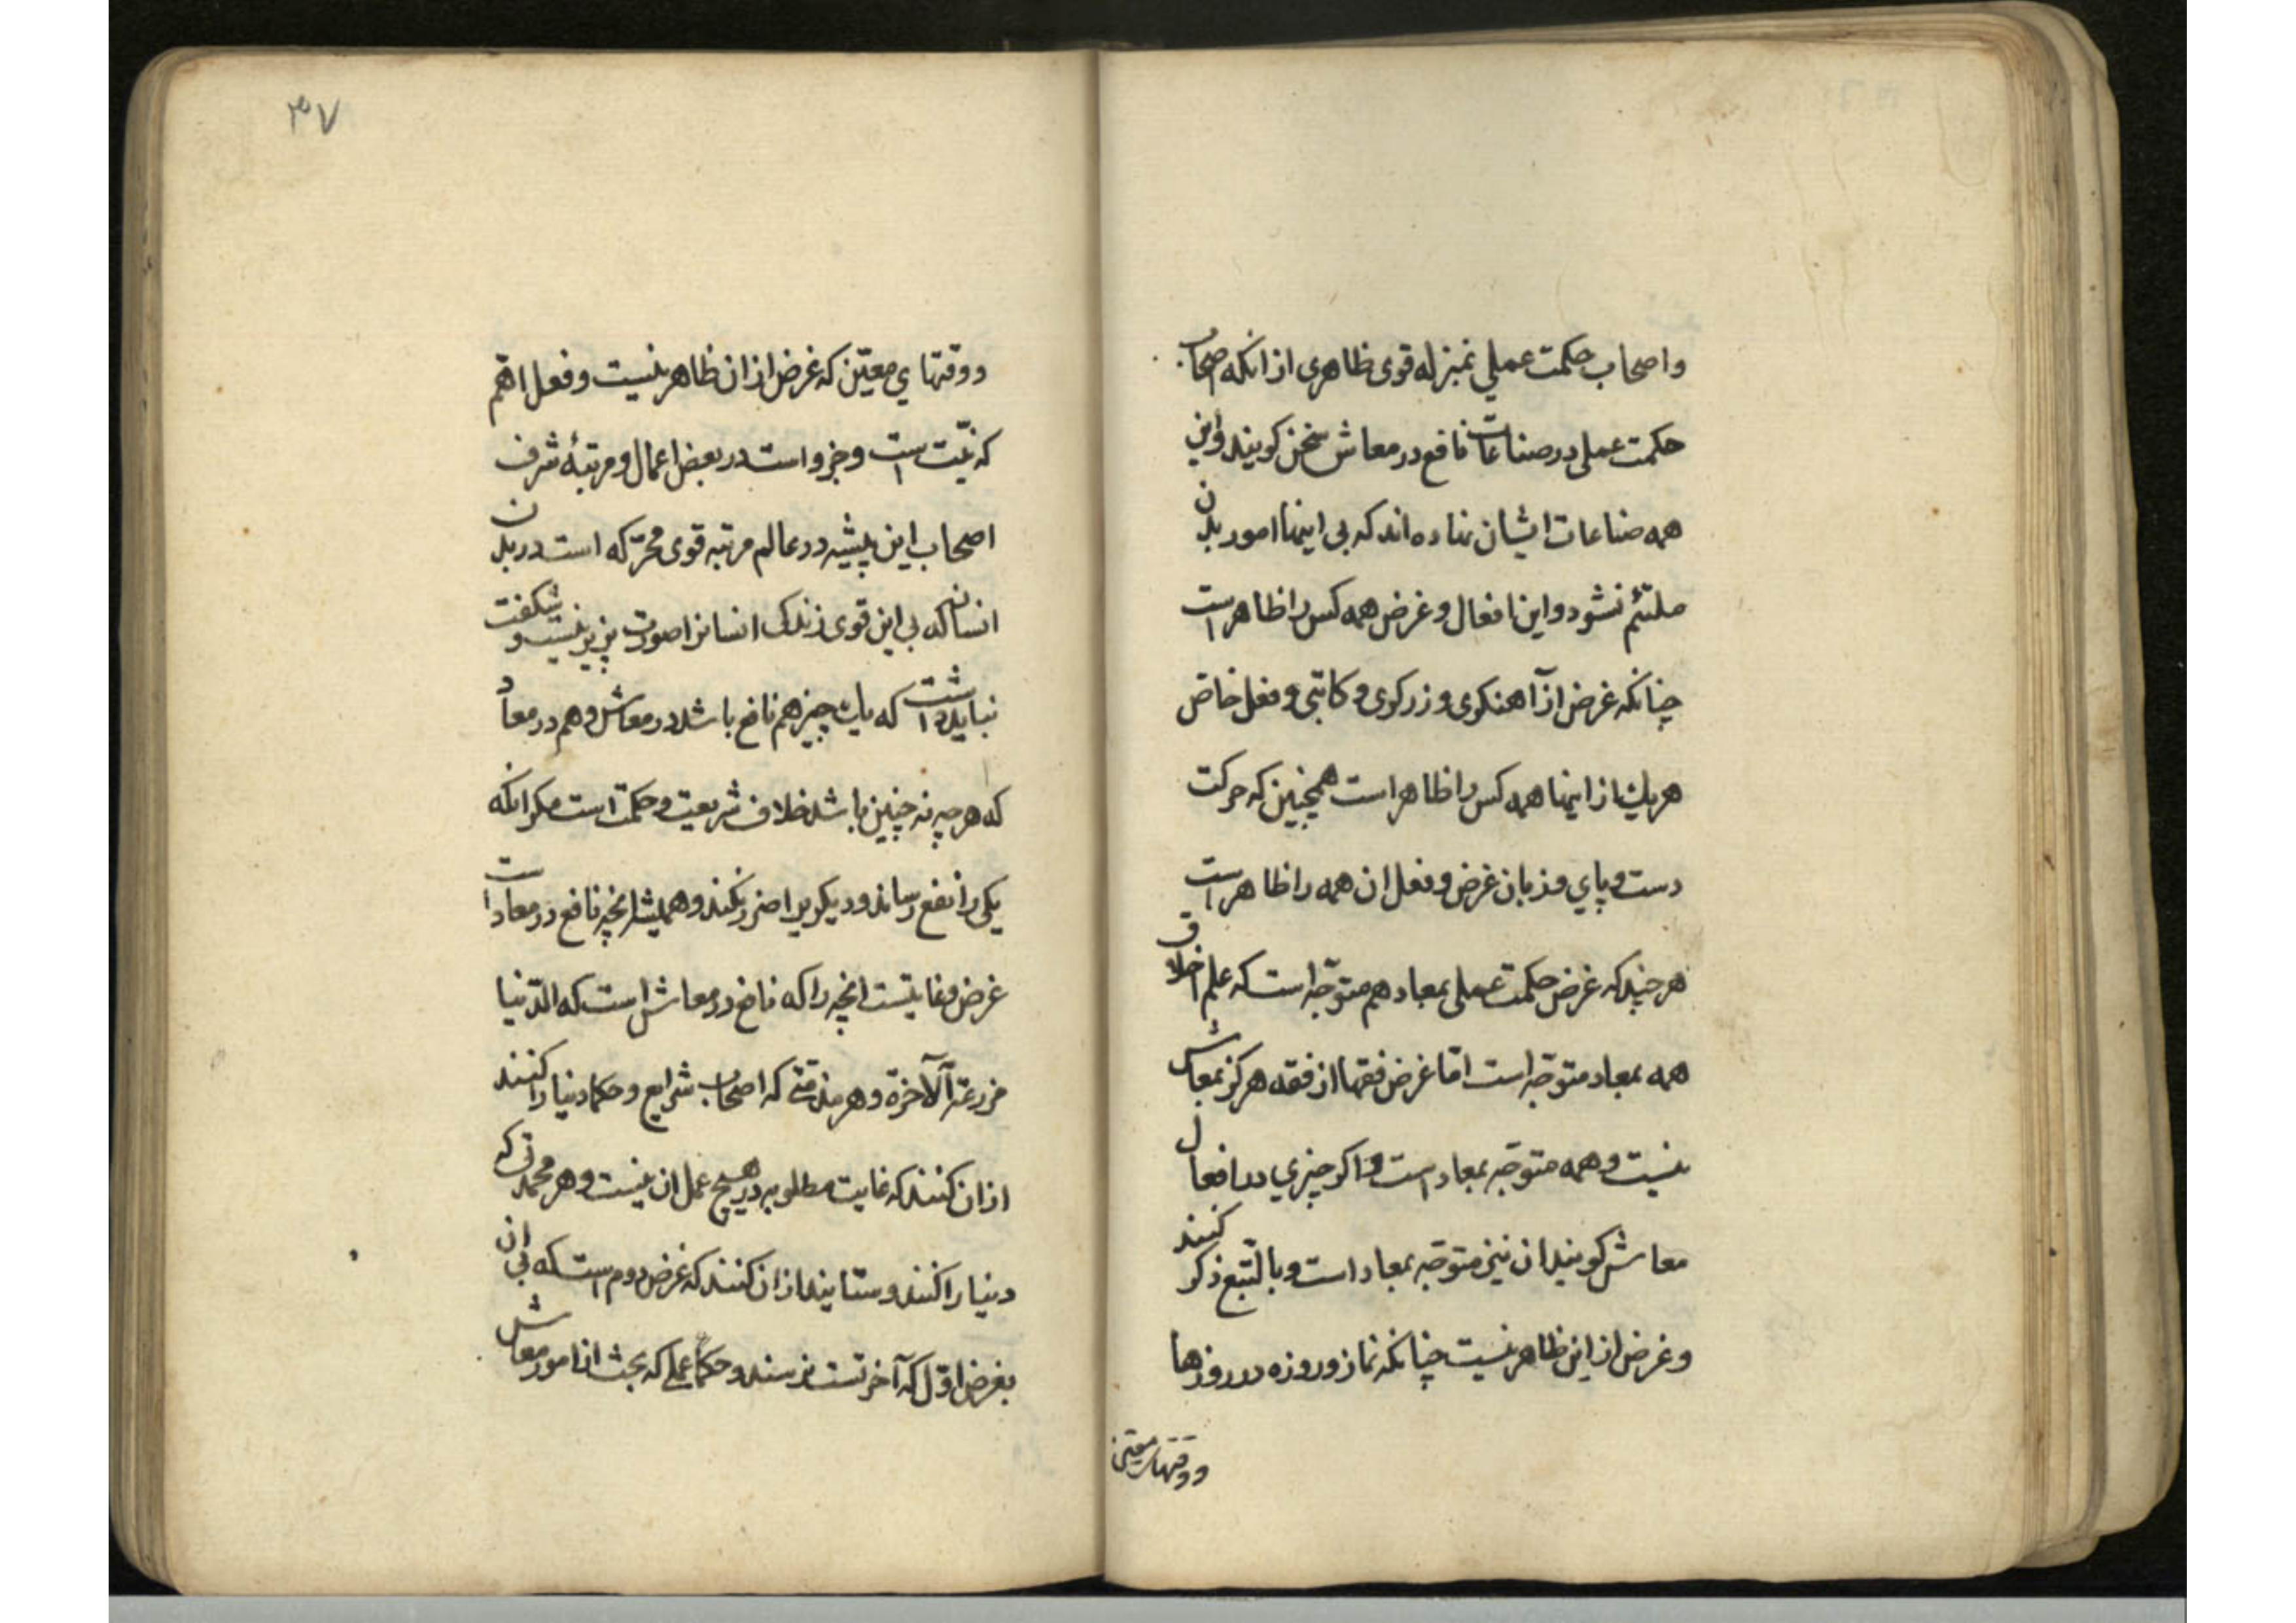 واصحاب حکمت عملي بمنزله قوی ظاهری ازانکه اصحاب
حکمت عملی در صناعات نافع در معاش سخن کویند واین
همه صناعات ایشان نهاده اند که بی اینها امور بدن
ملتئم نشود واین افعال وغرض همه کس را ظاهر است
چنانکه غرض از آهنکری وزرکری وکاتبی وفعل خاص
هریك ازاینها همه کس را ظاهر است همچنین که حرکت
دست وپاي وزبان غرض وفعل ان همه را ظاهر است
هر چند که غرض حکمت عملی بمعاد هم متوجّه است که علم اخلاق
همه بمعاد متوجّه است امّا غرض فقها از فقه هرکز بمعاش
نیست وهمه متوجّه بمعاد است واکر چیزي در افعال
معاش کویند ان نیز متوجّه بمعاد است وبالتّبع ذکر کنند
وغرض از این ظاهر نیست چنانکه نماز وروزه در روزها
ووقتهای معیّن
۳۷
ووقتهاي معیّن که غرض ازان ظاهر نیست وفعل اهمّ
که نیّت است وجزو است در بعض اعمال ومرتبهٔ شرف
اصحاب این پیشه در عالم مرتبه قوی محرّکه است در بدن
انسان که بی این قوی زندکی انسانرا صورت پزیر نیست و شکفت
نباید داشت که یك چیز هم نافع باشد در معاش وهم در معاد
که هر چه نه چنین باشد خلاف شریعت وحکمت است مکر انکه
یکی را نفع رساند ودیکریرا ضرر نکند وهمیشه انچه نافع در معاد است
غرض وغایتست انچه را که نافع در معاش است که الدّنیا
مزرعة الآخرة وهر مذمّتی که اصحاب شرایع وحکما دنیا را کنند
ازان کنند که غایت مطلوبه در هیچ عمل ان نیست وهر محمدتی که
دنیا را کنند وستایند ازان کنند که غرض دوم است که بی ان
بغرض اوّل که آخرتست نرسند وحکمآء عملی که بحث از امور معاش